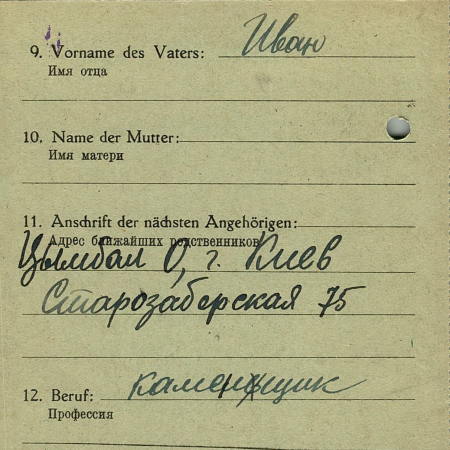 9. Vorname des Vaters: Иван
Имя отца
10. Name der Mutter:
Имя матери
11. Anschrift der nächsten Angehörigen:
Адрес ближайших родственников
Цымбал О, г. Киев
Старозаберская 75
12. Beruf: каменьщик
Профессия